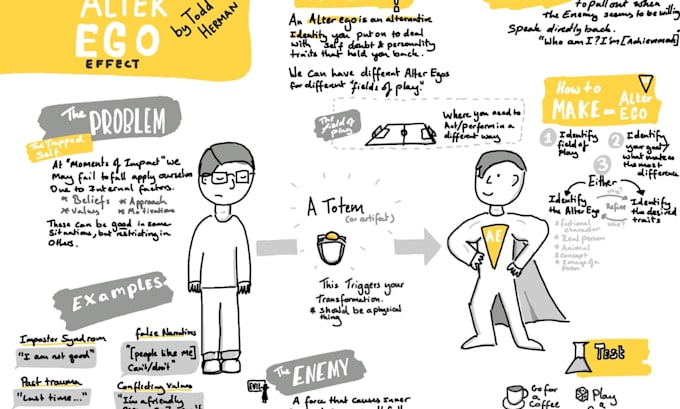 ALTER
EGO
EFFECT
by Todd
HERMAN
An Alter ego is an alternative
Identity you put on to deal
with self doubt & personality
traits that hold you back.
We can have different Alter Egos
for different "fields of play".
to pull out when
the Enemy seems to be willing
Speak directly back.
"Who am I? I'm [Achievement]
The PROBLEM
The Trapped
Self
At "Moments of Impact" we
May fail to fall apply ourselves
Due to Internal factors.
* Beliefs * Approach
* Values * Motivations
These can be good in some
Situations, but restricting in
Others.
Examples
Imposter Syndrom
"I am not good"
False Narratives
"[people like me]
Can't/don't"
Past trauma
"Last time..."
Conflicting Values
"I'm a friendly
The field of
play
Where you need to
Act/perform in a
different way
A Totem
(or artifact)
This Triggers your
Transformation.
* Should be a physical
thing
The ENEMY
EVIL
A force that causes Inner
AE
How to
MAKE an Alter
EGO
1 Identify
field of
Play
2 Identify
your goal/
what makes
the most
difference
3
Either
Identify
the Alter Ego
who?
Refine
why?
Identify
the desired
traits
* Fictional
character
* Real person
* Animal
* Concept
Test
Go for
a
Coffee
Play
a